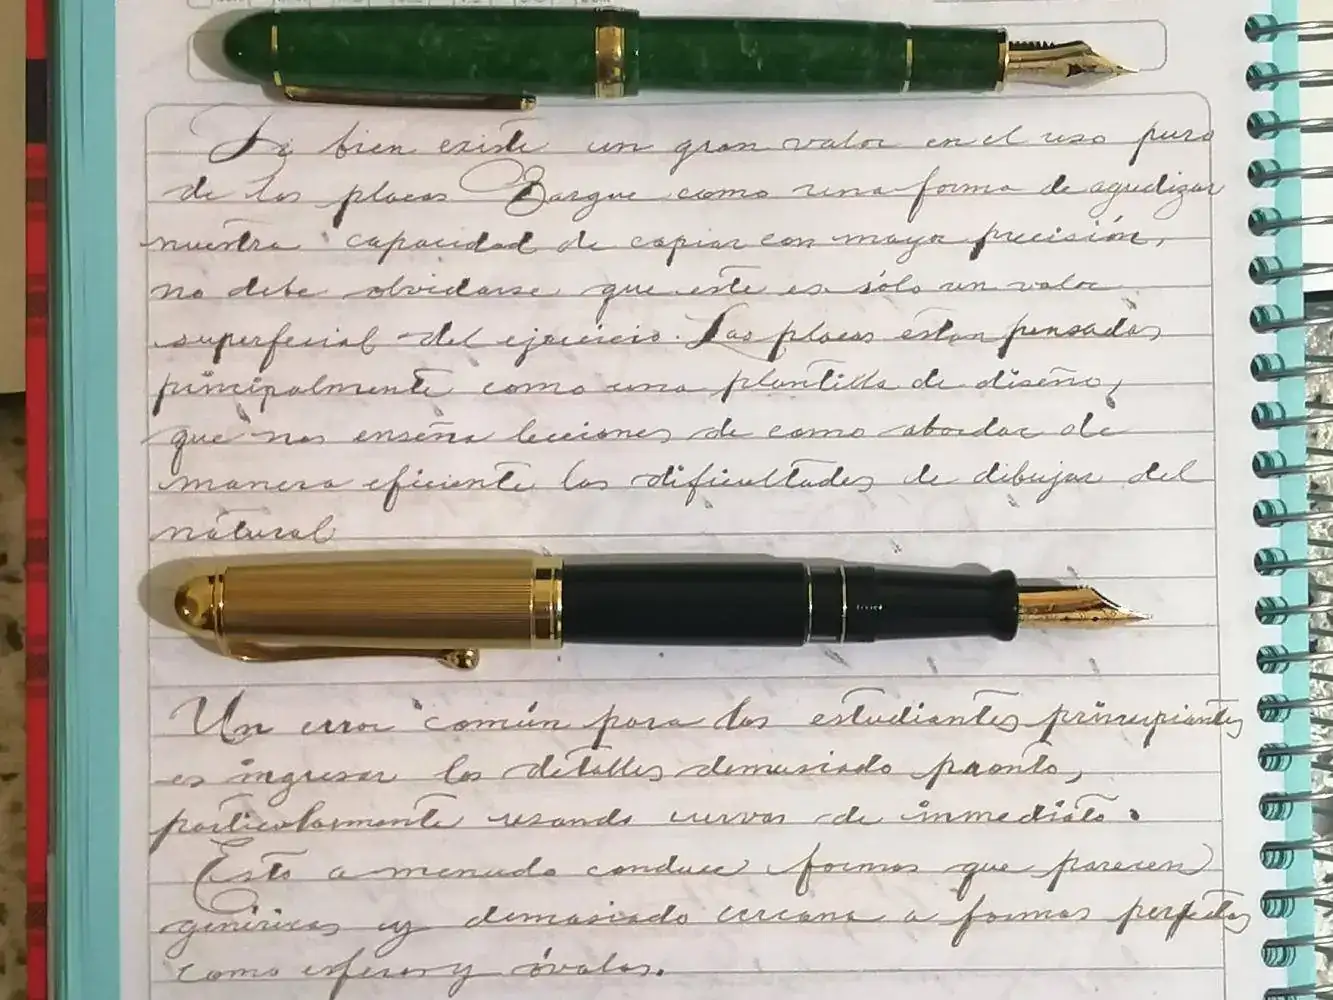 Si bien existe un gran valor en el uso puro
de las placas Bargue como una forma de agudizar
nuestra capacidad de copiar con mayor precisión,
no debe olvidarse que este es sólo un valor
superficial del ejercicio. Las placas estan pensadas
principalmente como una plantilla de diseño,
que nos enseña lecciones de como abordar de
manera eficiente las dificultades de dibujar del
natural
Un error común para los estudiantes principiantes
es ingresar los detalles demasiado pronto,
particularmente usando curvas de inmediato.
Esto a menudo conduce formas que parecen
genéricas y demasiado cercana a formas perfectas
como esferas y óvalos.